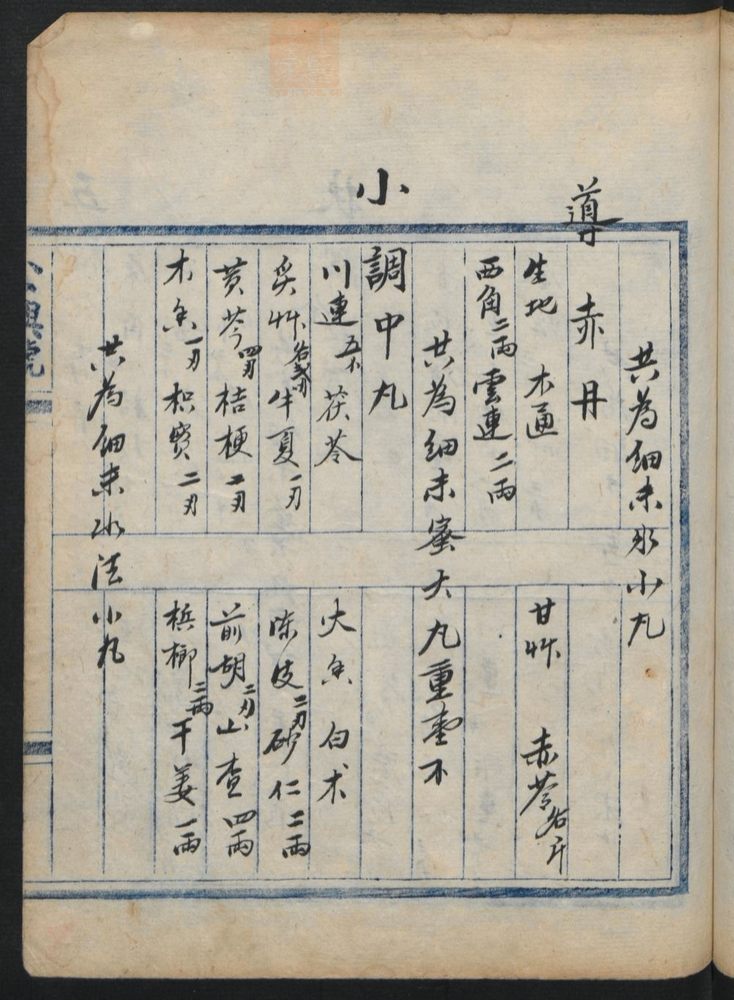 共為細末水小丸
導赤丹
生地 木通 甘艸 赤苓各斤
西角二両 雲連二両
共為細末蜜大丸重壹不
小
調中丸
川連五不 茯苓 大香 白术
炙艸各弍刃 半夏一刃 陈皮二刃 砂仁二両
黄芩四刃 桔梗二刃 前胡二刃 山查四両
木香一刃 枳實二刃 梹榔二両 干姜一両
共為細末水法小丸